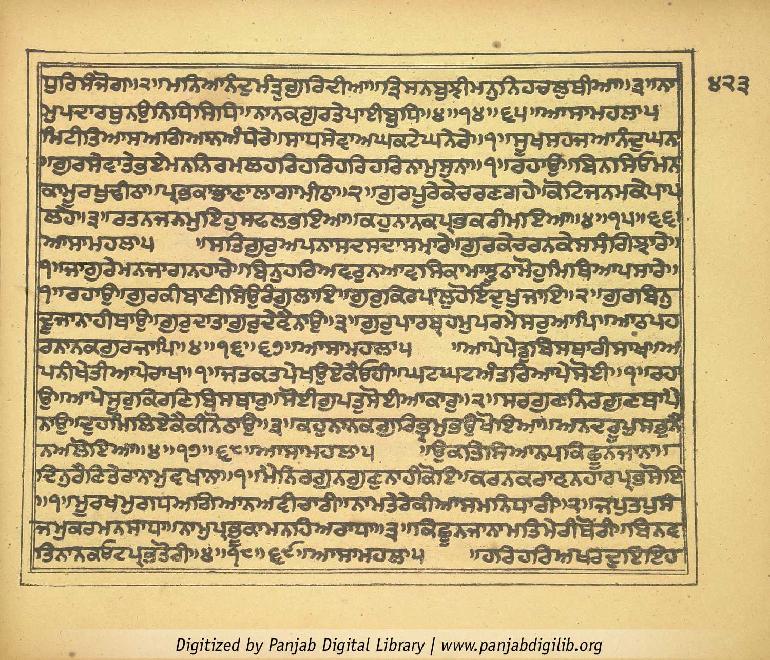 ਧੁਰਿਸੰਜੋਗਾ॥੨॥ਮਨਿਆਨੰਦੁਮੰਤ੍ਰੁਗੁਰਿਦੀਆ॥ਤ੍ਰਿਸਨਬੁਝੀਮਨੁਨਿਹਚਲੁਥੀਆ॥੩॥ਨਾ ੪੨੩
ਮੁਪਦਾਰਥੁਨਉਨਿਧਿਸਿਧਿ॥ਨਾਨਕਗੁਰਤੇਪਾਈਬੁਧਿ॥੪॥੧੪॥੬੫॥ਆਸਾਮਹਲਾ੫
ਮਿਟੀਤਿਆਸਅਗਿਆਨਅੰਧੇਰੇ॥ਸਾਧਸੇਵਾਅਘਕਟੇਘਨੇਰੇ॥੧॥ਸੂਖਸਹਜਆਨੰਦੁਘਨਾ
॥ਗੁਰਸੇਵਾਤੇਭਏਮਨਨਿਰਮਲਹਰਿਹਰਿਹਰਿਹਰਿਨਾਮੁਸੁਨਾ॥੧॥ਰਹਾਉ॥ਬਿਨਸਿਓਮਨ
ਕਾਮੂਰਖੁਢੀਠਾ॥ਪ੍ਰਭਕਾਭਾਣਾਲਾਗਾਮੀਠਾ॥੨॥ਗੁਰਪੂਰੇਕੇਚਰਣਗਹੇ॥ਕੋਟਿਜਨਮਕੇਪਾਪ
ਲਹੇ॥੩॥ਰਤਨਜਨਮੁਇਹੁਸਫਲਭਇਆ॥ਕਹੁਨਾਨਕਪ੍ਰਭਕਰੀਮਇਆ॥੪॥੧੫॥੬੬॥
ਆਸਾਮਹਲਾ੫ ॥ਸਤਿਗੁਰੁਅਪਨਾਸਦਸਦਾਸਮਾਰੇ॥ਗੁਰਕੇਚਰਨਕੇਸਸੰਗਿਝਾਰੇ॥
੧॥ਜਾਗੁਰੇਮਨਜਾਗਨਹਾਰੇ॥ਬਿਨੁਹਰਿਅਵਰੁਨਆਵਸਿਕਾਮਾਝੂਠਾਮੋਹੁਮਿਥਿਆਪਸਾਰੇ॥
੧॥ਰਹਾਉ॥ਗੁਰਕੀਬਾਣੀਸਿਉਰੰਗੁਲਾਇ॥ਗੁਰੁਕਿਰਪਾਲੁਹੋਇਦੁਖੁਜਾਇ॥੨॥ਗੁਰਬਿਨੁ
ਦੂਜਾਨਾਹੀਥਾਉ॥ਗੁਰੁਦਾਤਾਗੁਰੁਦੇਵੈਨਾਉ॥੩॥ਗੁਰੁਪਾਰਬ੍ਰਹਮੁਪਰਮੇਸਰੁਆਪਿ॥ਆਠਪਹ
ਰਨਾਨਕਗੁਰਜਾਪਿ॥੪॥੧੬॥੬੭॥ਆਸਾਮਹਲਾ੫ ॥ਆਪੇਪੇਡੁਬਿਸਥਾਰੀਸਾਖ॥ਅ
ਪਨੀਖੇਤੀਆਪੇਰਾਖ॥੧॥ਜਤਕਤਪੇਖਉਏਕੈਓਹੀ॥ਘਟਘਟਅੰਤਰਿਆਪੇਸੋਈ॥੧॥ਰਹਾ
ਉ॥ਆਪੇਸੂਰੁਕਿਰਣਿਬਿਸਥਾਰੁ॥ਸੋਈਗੁਪਤੁਸੋਈਆਕਾਰੁ॥੨॥ਸਰਗੁਣਨਿਰਗੁਣਥਾਪੈ
ਨਾਉ॥ਦੁਹਮਿਲਿਏਕੈਕੀਨੋਠਾਉ॥੩॥ਕਹੁਨਾਨਕਗੁਰਿਭ੍ਰਮੁਭਉਖੋਇਆ॥ਅਨਦਰੂਪੁਸਭੁਨੈ
ਨਅਲੋਇਆ॥੪॥੧੭॥੬੮॥ਆਸਾਮਹਲਾ੫ ॥ਉਕਤਿਸਿਆਨਪਕਿਛੂਨਜਾਨਾ॥
ਦਿਨੁਰੈਣਿਤੇਰਾਨਾਮੁਵਖਾਨਾ॥੧॥ਮੈਨਿਰਗੁਨਗੁਣੁਨਾਹੀਕੋਇ॥ਕਰਨਕਰਾਵਨਹਾਰਪ੍ਰਭਸੋਇ
॥੧॥ਮੂਰਖਮੁਗਧਅਗਿਆਨਅਵੀਚਾਰੀ॥ਨਾਮਤੇਰੇਕੀਆਸਮਨਿਧਾਰੀ॥੨॥ਜਪੁਤਪੁਸੰ
ਜਮੁਕਰਮਨਸਾਧਾ॥ਨਾਮੁਪ੍ਰਭੂਕਾਮਨਹਿਅਰਾਧਾ॥੩॥ਕਿਛੂਨਜਾਨਾਮਤਿਮੇਰੀਥੋਰੀ॥ਬਿਨਵ
ਤਿਨਾਨਕਓਟਪ੍ਰਭਤੋਰੀ॥੪॥੧੮॥੬੯॥ਆਸਾਮਹਲਾ੫ ॥ਹਰਿਹਰਿਅਖਰਦੁਇਇਹ
Digitized by Panjab Digital Library | www.panjabdigilib.org